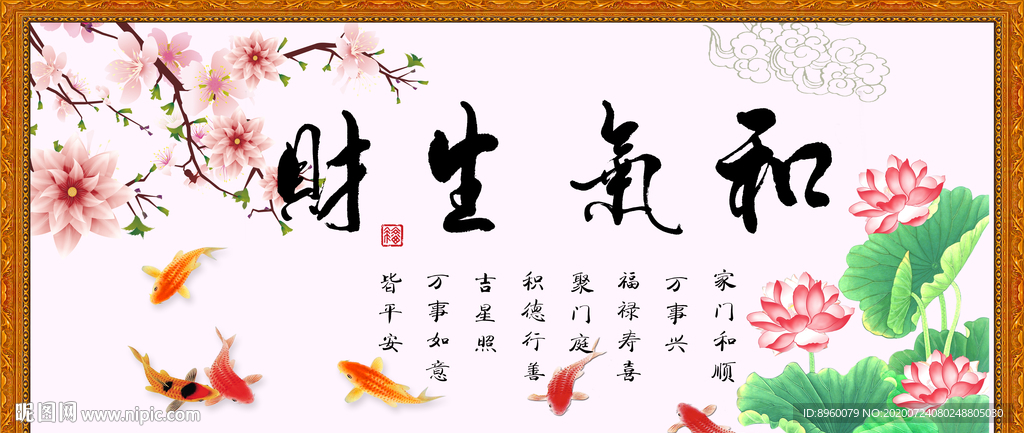 和氣生財
福
家门和顺
万事兴
福禄寿喜
聚门庭
积德行善
吉星照
万事如意
皆平安
昵图网 www.nipic.com
ID:8960079 NO:20200724080248805030